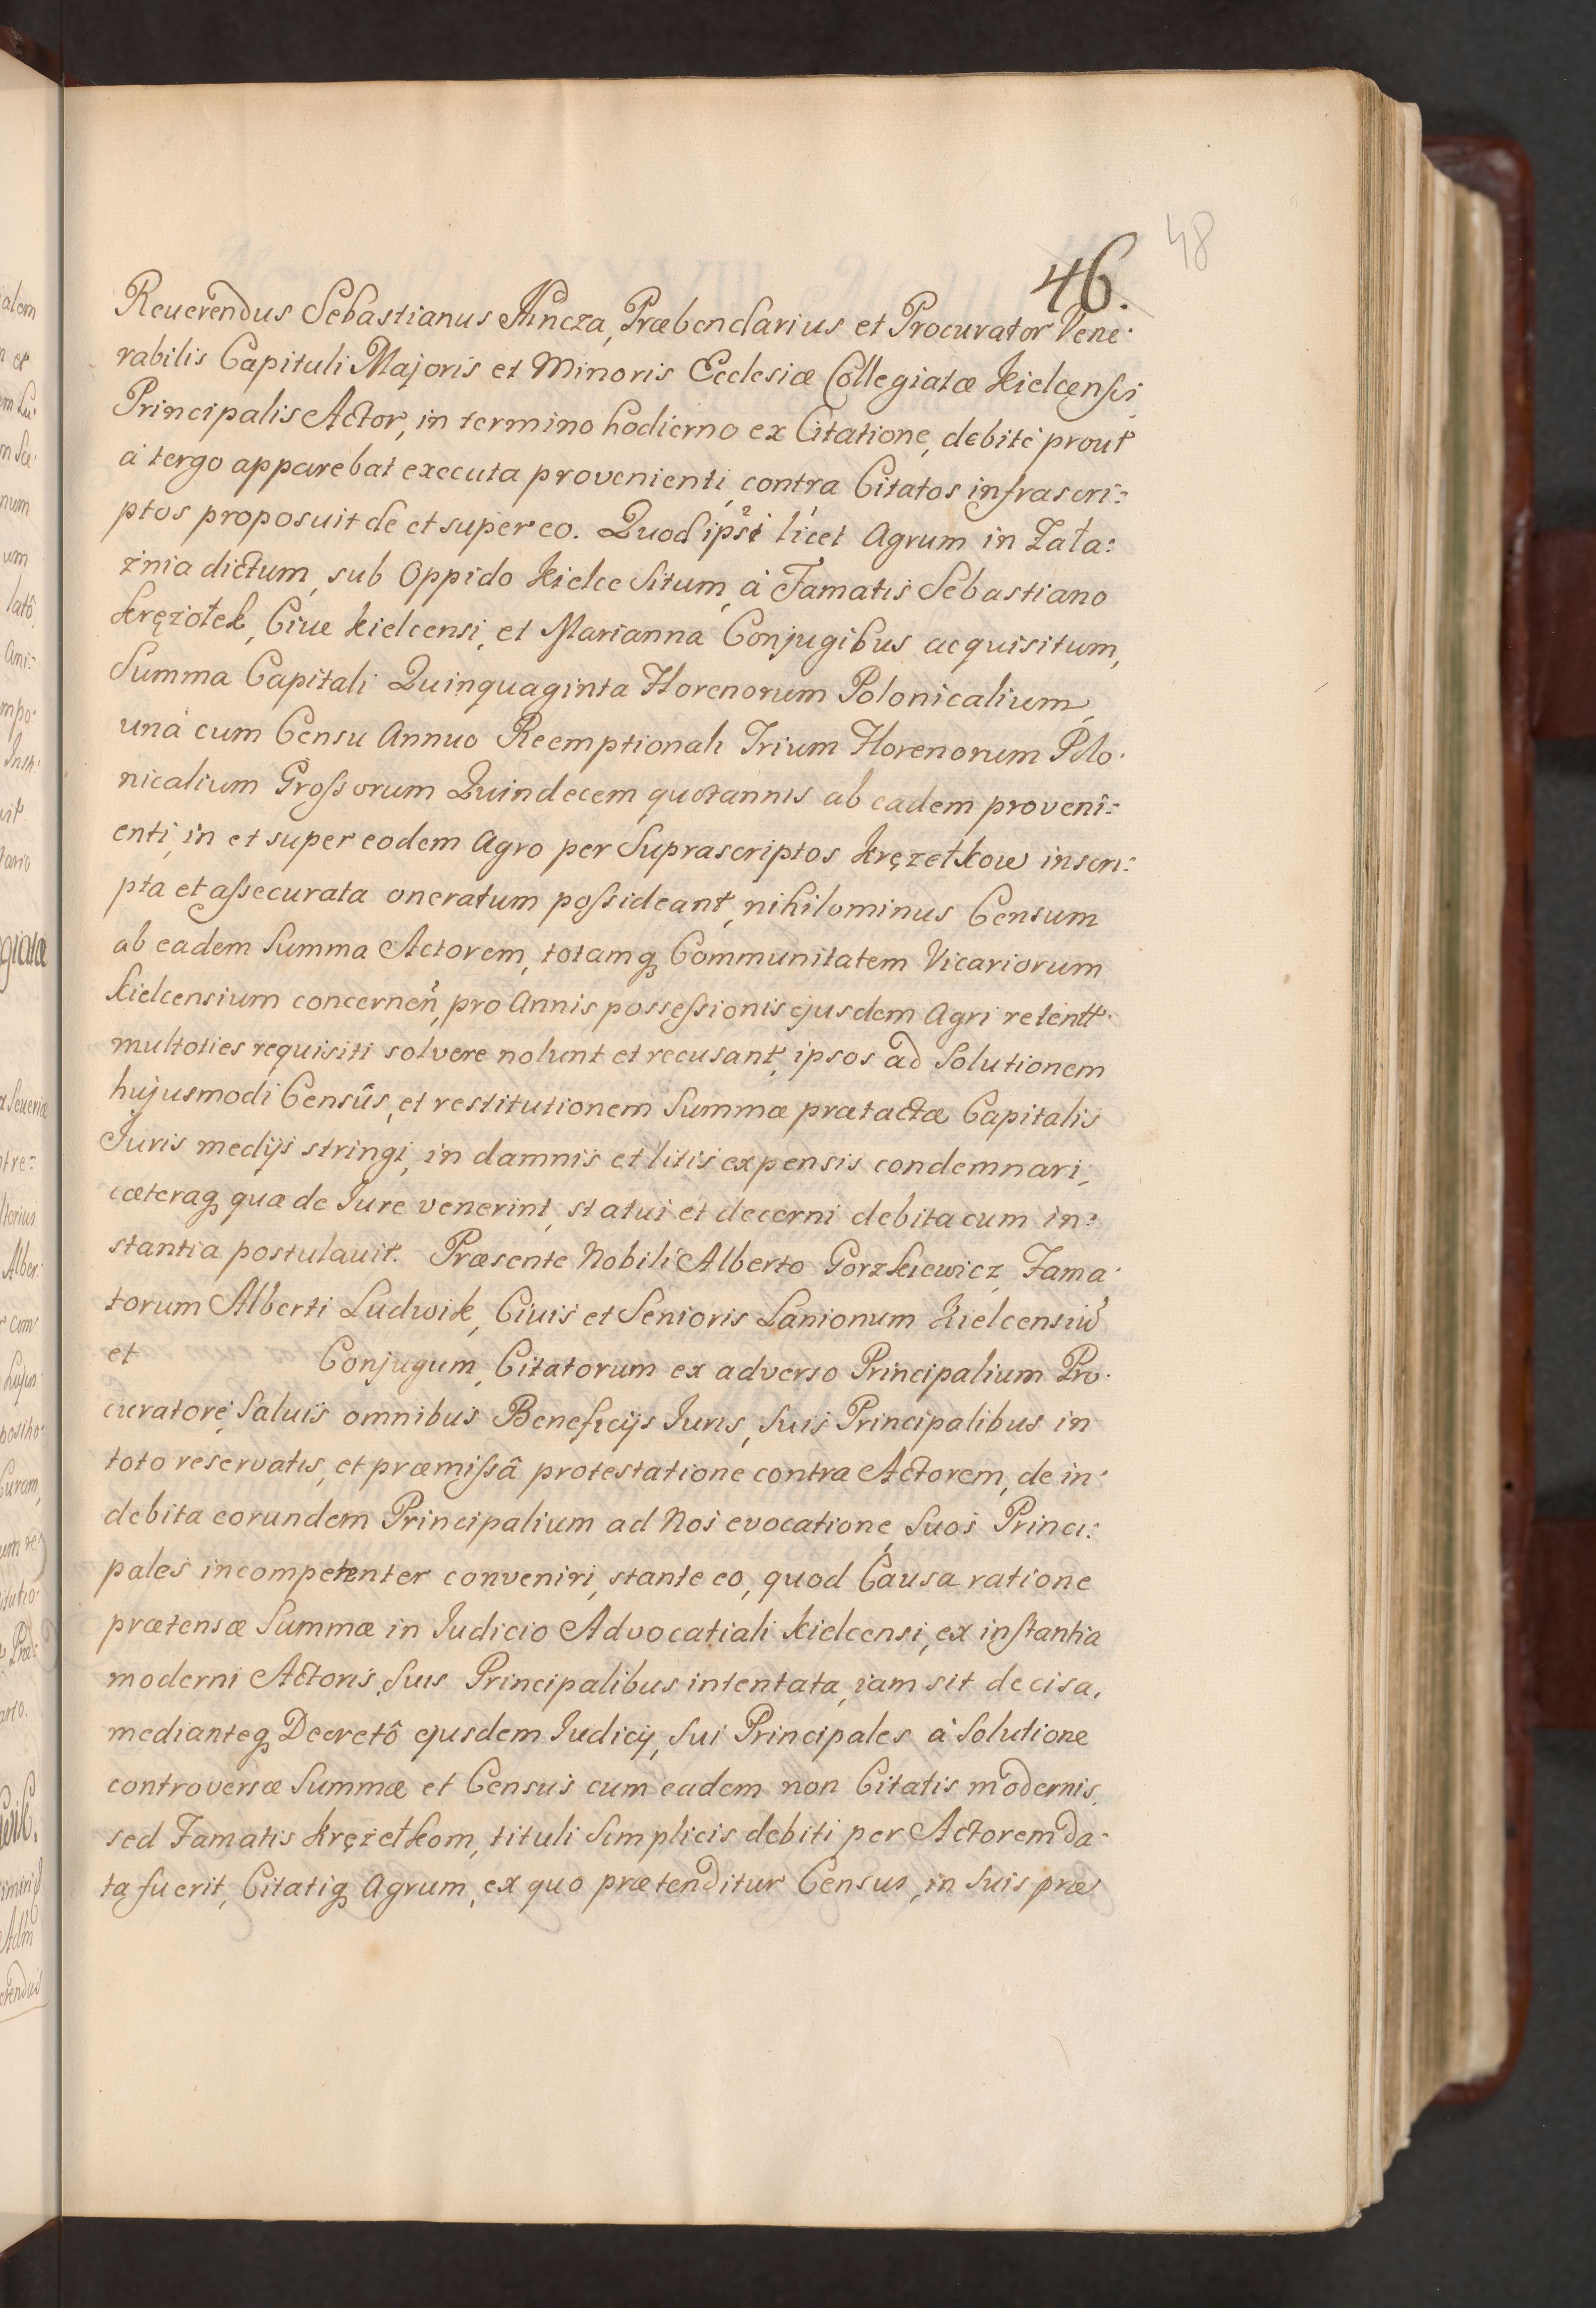 48
46.
Reuerendus Sebastianus Kuncza, Præbendarius et Procurator Vene:
rabilis Capituli Majoris et Minoris Ecclesiæ Collegiatæ Kielcensis
Principalis Actor, in termino hodierno ex Citatione, debitè prout
à tergo apparebat executa provenienti, contra Citatos infrascri:
ptos proposuit de et super eo. Quod ipsi licet Agrum in Zała:
źnia dictum, sub Oppido Kielce Situm, à Famatis Sebastiano
Kręzołek, Ciue Kielcensi, et Marianna Conjugibus acquisitum,
Summa Capitali Quinquaginta Florenorum Polonicalium,
unà cum Censu Annuo Reemptionali Trium Florenorum Polo:
nicalium Grossorum Quindecem quotannis ab eadem proveni:
enti, in et super eodem Agro per Suprascriptos Kręzełkow inscri:
pta et assecurata oneratum possideant, nihilominus Censum
ab eadem Summa Actorem, totamq₃ Communitatem Vicariorum
Kielcensium concernen̄, pro Annis possessionis ejusdem Agri retentt.
multoties requisiti solvere nolunt et recusant, ipsos ad Solutionem
hujusmodi Censûs, et restitutionem Summæ prætactæ Capitalis
Juris medijs stringi, in damnis et litis expensis condemnari,
cæteraq₃ quæ de Jure venerint, statui et decerni debita cum in:
stantia postulavit. Præsente Nobili Alberto Gorzkiewicz, Fama:
torum Alberti Ludwik, Civis et Senioris Lanionum Kielcensiū
et Conjugum, Citatorum ex adverso Principalium Pro:
curatore, Salvis omnibus Beneficijs Juris, Suis Principalibus in
toto reservatis, et præmissâ protestatione contra Actorem, de in:
debita eorundem Principalium ad Nos evocatione, Suos Princi:
pales incompetenter conveniri, stante eo, quod Causa ratione
prætensæ Summæ in Judicio Advocatiali Kielcensi, ex instantia
moderni Actoris, Suis Principalibus intentata, iam sit decisa,
medianteq₃ Decretô ejusdem Judicij, Sui Principales à Solutione
controversæ Summæ et Census cum eadem non Citatis modernis,
sed Famatis Kręzełkom, tituli Simplicis debiti per Actorem da:
ta fuerit, Citatiq₃ Agrum, ex quo prætenditur Census, in Suis præ